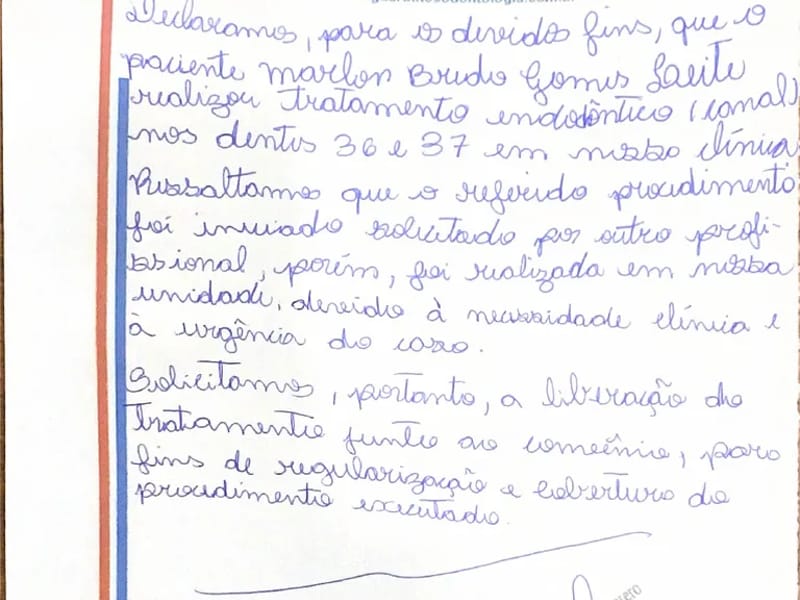 Declaramos, para os devidos fins, que o
paciente Marlon Bredo Gomes Leite
realizou tratamento endodôntico (canal)
nos dentes 36 e 37 em nossa clínica
Ressaltamos que o referido procedimento
foi iniciado solicitado por outro profi-
ssional, porém, foi realizada em nossa
unidade, devido à necessidade clínica e
à urgência do caso.
Solicitamos, portanto, a liberação do
tratamento junto ao convênio, para
fins de regularização e cobertura do
procedimento executado.